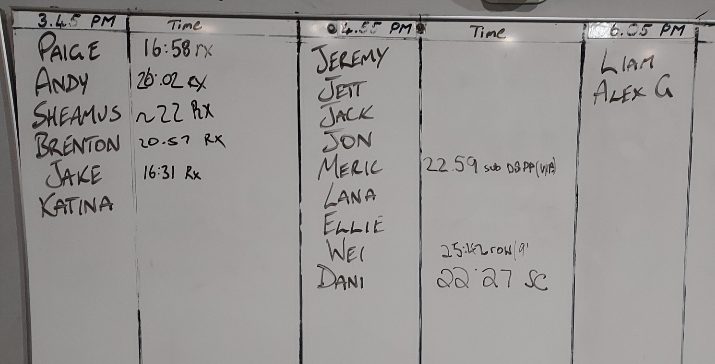 3.45 PM Time
PAIGE 16:58 rx
ANDY 20:02 RX
SHEAMUS ~22 RX
BRENTON 20.57 RX
JAKE 16:31 RX
KATINA
4.55 PM Time
JEREMY
JETT
JACK
JON
MERIC 22.59 SUB
LANA
ELLIE
WEI 25:42 row
DANI 22:27 SC
6.05 PM
LIAM
ALEX G